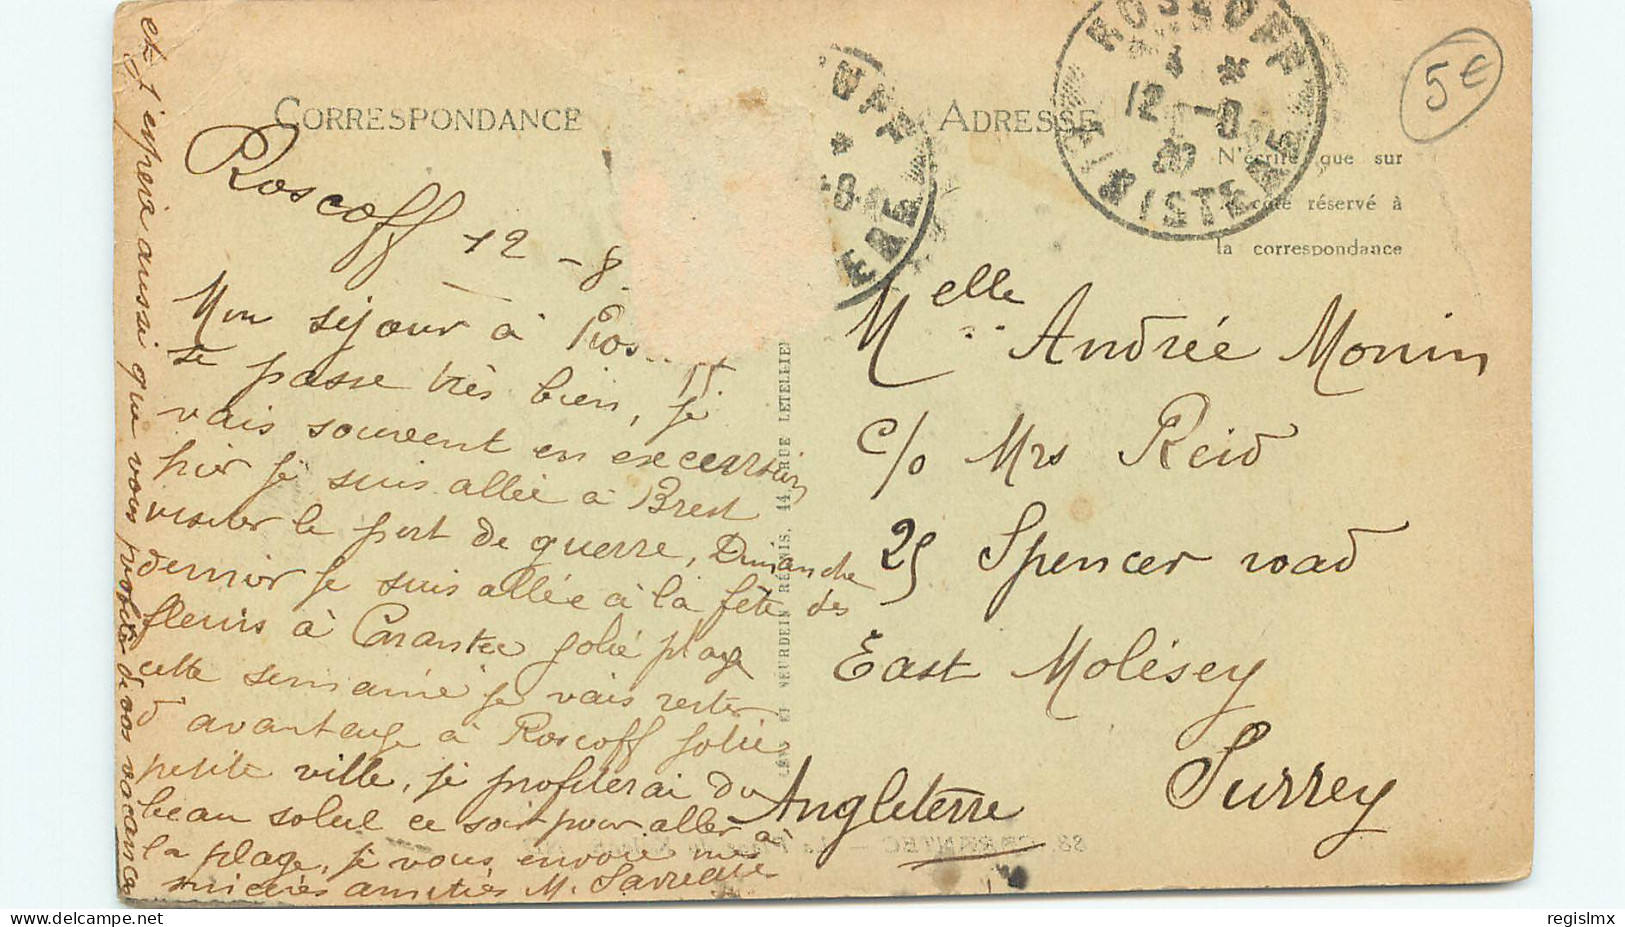 CORRESPONDANCE
Roscoff 12-8.
Mon séjour à
se passe très bien, je
vais souvent en excursion
hier je suis allée à Brest
visiter le port de guerre, Dimanche
dernier je suis allée à la fête des
fleurs à Carantec jolie plage
cette semaine je vais rester
d'avantage à Roscoff jolie
petite ville, je profiterai du
beau soleil ce soir pour aller à
la plage, je vous envoie mes
sincères amitiés M.
et j'espère aussi que vous profitez de vos vacances
ADRESSE
N'écrire que sur
côté réservé à
la correspondance
ROSCOFF
12-8
20
FINISTERE
5€
Melle Andrée Monin
c/o Mrs Reid
25 Spencer road
East Molésey
Surrey
Angleterre
LEVY ET NEURDEIN RÉUNIS, 44, RUE LETELLIER
delcampe.net
regislmx